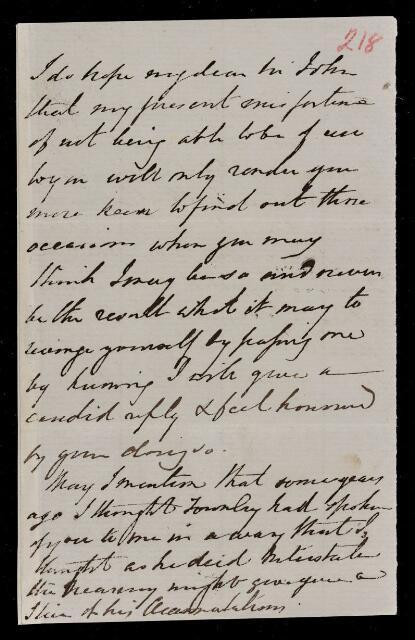 218
I do hope my dear Sir John
that my present misfortune
of not being able to be of use
to you will only render you
more keen to find out those
occasions when you may
think I may be so and never
be the result what it may to
revenge yourself by passing me
by knowing I will give a
candid reply & feel honoured
by your doing so.
May I mention that some years
ago I thought Townley had spoken
of you to me in a way that I
thought as he died intestate
the nearest might give you a
of his Accumulations.